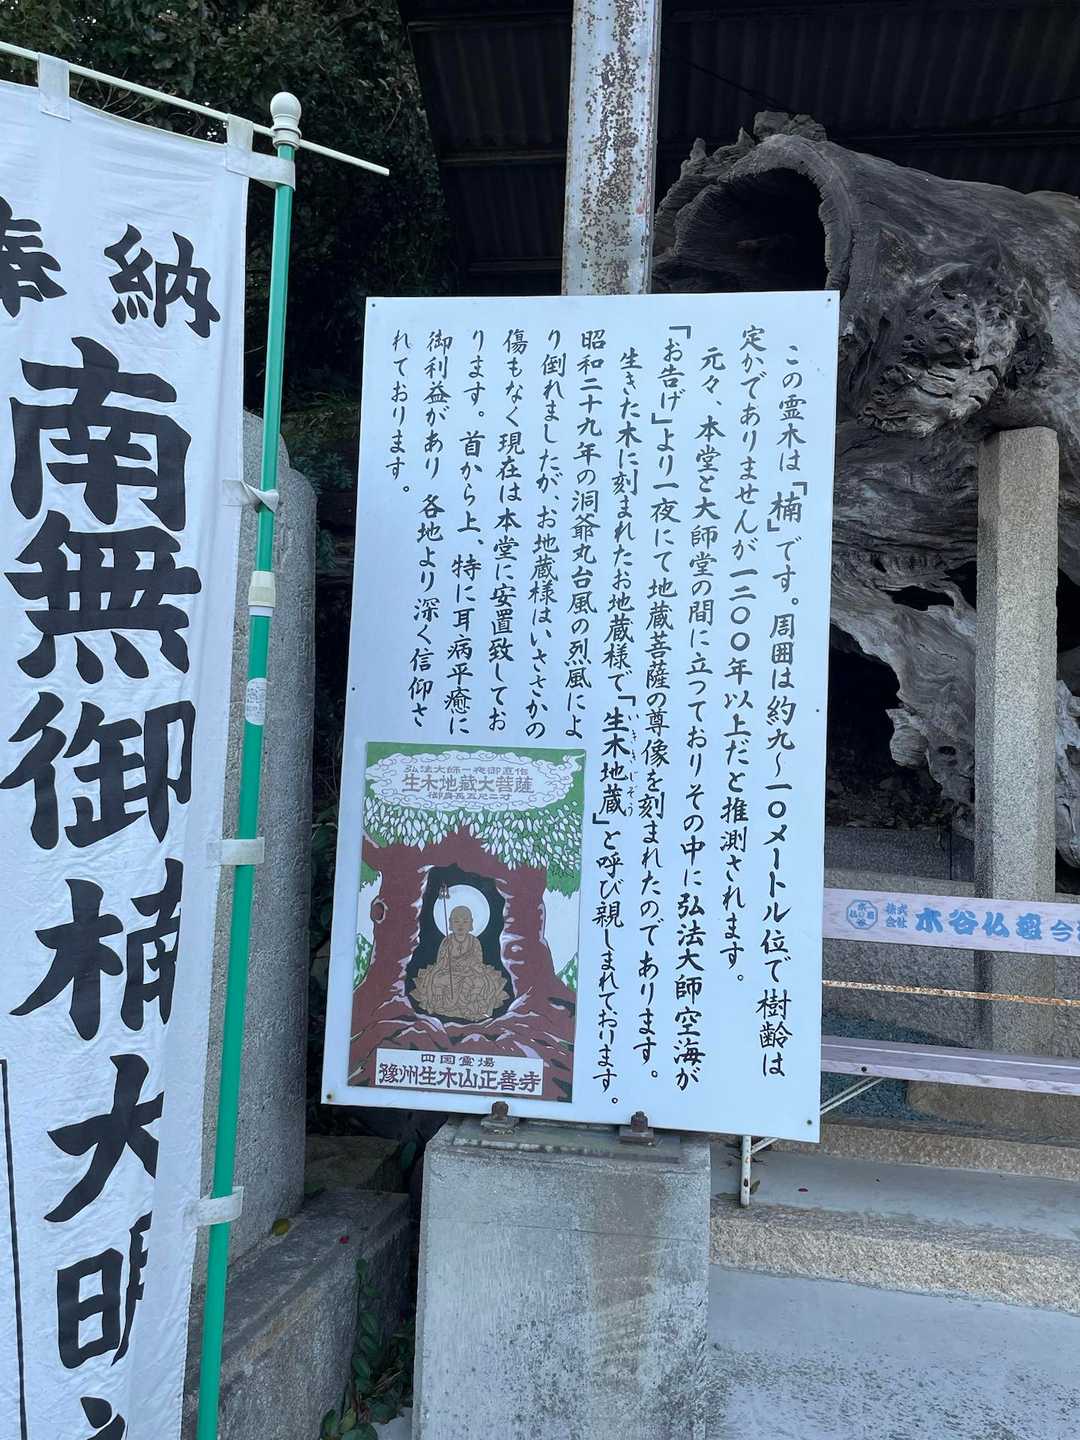 この霊木は「楠」です。周囲は約九〜一〇メートル位で樹齢は
定かでありませんが一二〇〇年以上だと推測されます。
元々、本堂と大師堂の間に立っておりその中に弘法大師空海が
「お告げ」より一夜にて地蔵菩薩の尊像を刻まれたのであります。
生きた木に刻まれたお地蔵様で「生木地蔵」と呼び親しまれております。
いききじぞう
昭和二十九年の洞爺丸台風の烈風によ
り倒れましたが、お地蔵様はいささかの
傷もなく現在は本堂に安置致してお
ります。首から上、特に耳病平癒に
御利益があり 各地より深く信仰さ
れております。
弘法大師一夜御直作
生木地蔵大菩薩
御身長五尺二寸
四国霊場
豫州生木山正善寺
奉納
南無御楠大明
株式会社 木谷仏壇 今